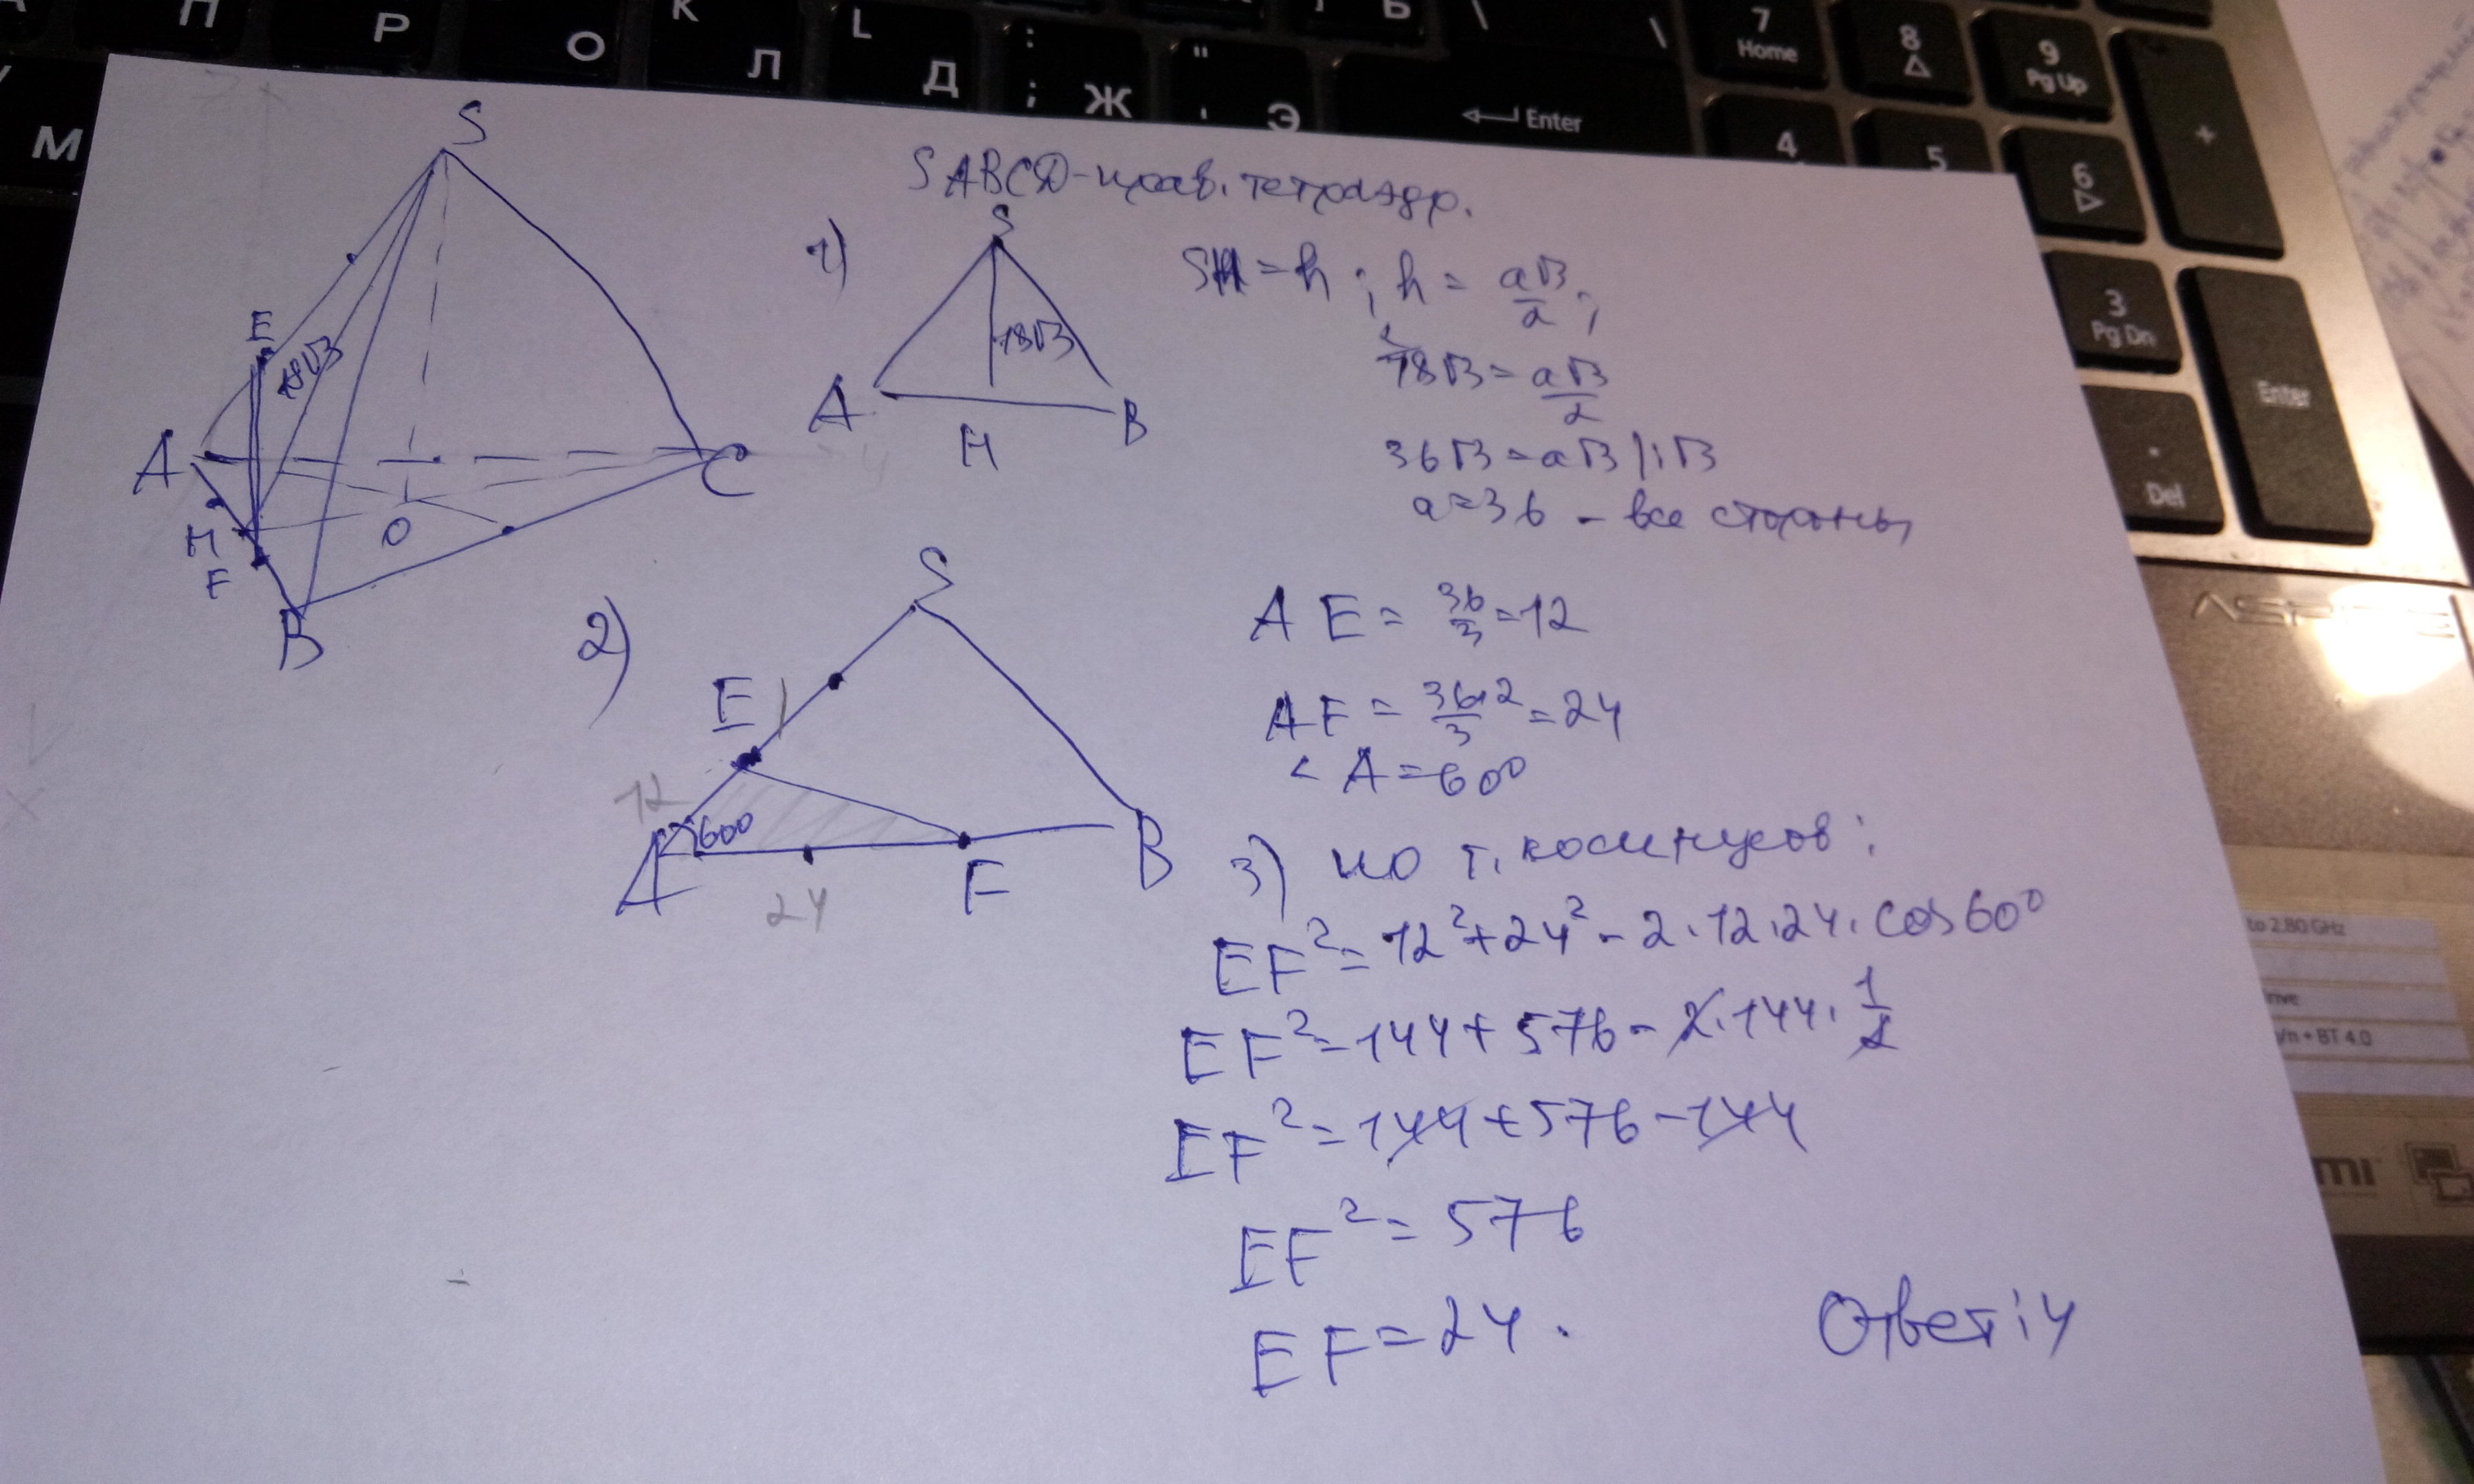 П
Р
О
K
Л
L
Д
:
;
Ж
"
'
Э
Ь
\
\
7
Home
8
9
Pg Up
+
М
Enter
4
5
6
3
Pg Dn
Enter
.
Del
S
E
18√3
A
C
H
O
F
B
SABCD - прав. тетраэдр.
1)
S
18√3
A
H
B
SH = h ; h = a√3/2 ;
18√3 = a√3/2
36√3 = a√3 | : √3
a = 36 - все стороны
2)
S
E
12
60°
A
24
F
B
AE = 36/3 = 12
AF = 36·2/3 = 24
< A = 60°
3) по т. косинусов:
EF² = 12² + 24² - 2·12·24·cos60°
EF² = 144 + 576 - 2·144·1/2
EF² = 144 + 576 - 144
EF² = 576
EF = 24.
Ответ: 4
to 2.80 GHz
rive
/n + BT 4.0
mi